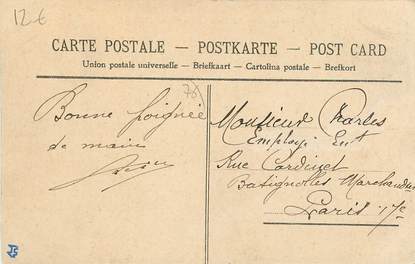 12 €
CARTE POSTALE — POSTKARTE — POST CARD
Union postale universelle — Briefkaart — Cartolina postale — Brefkort
78
Bonne poignée
de main
Monsieur Charles
Employé Ent
Rue Cardinet
Batignolles Marchandises
Paris 17e